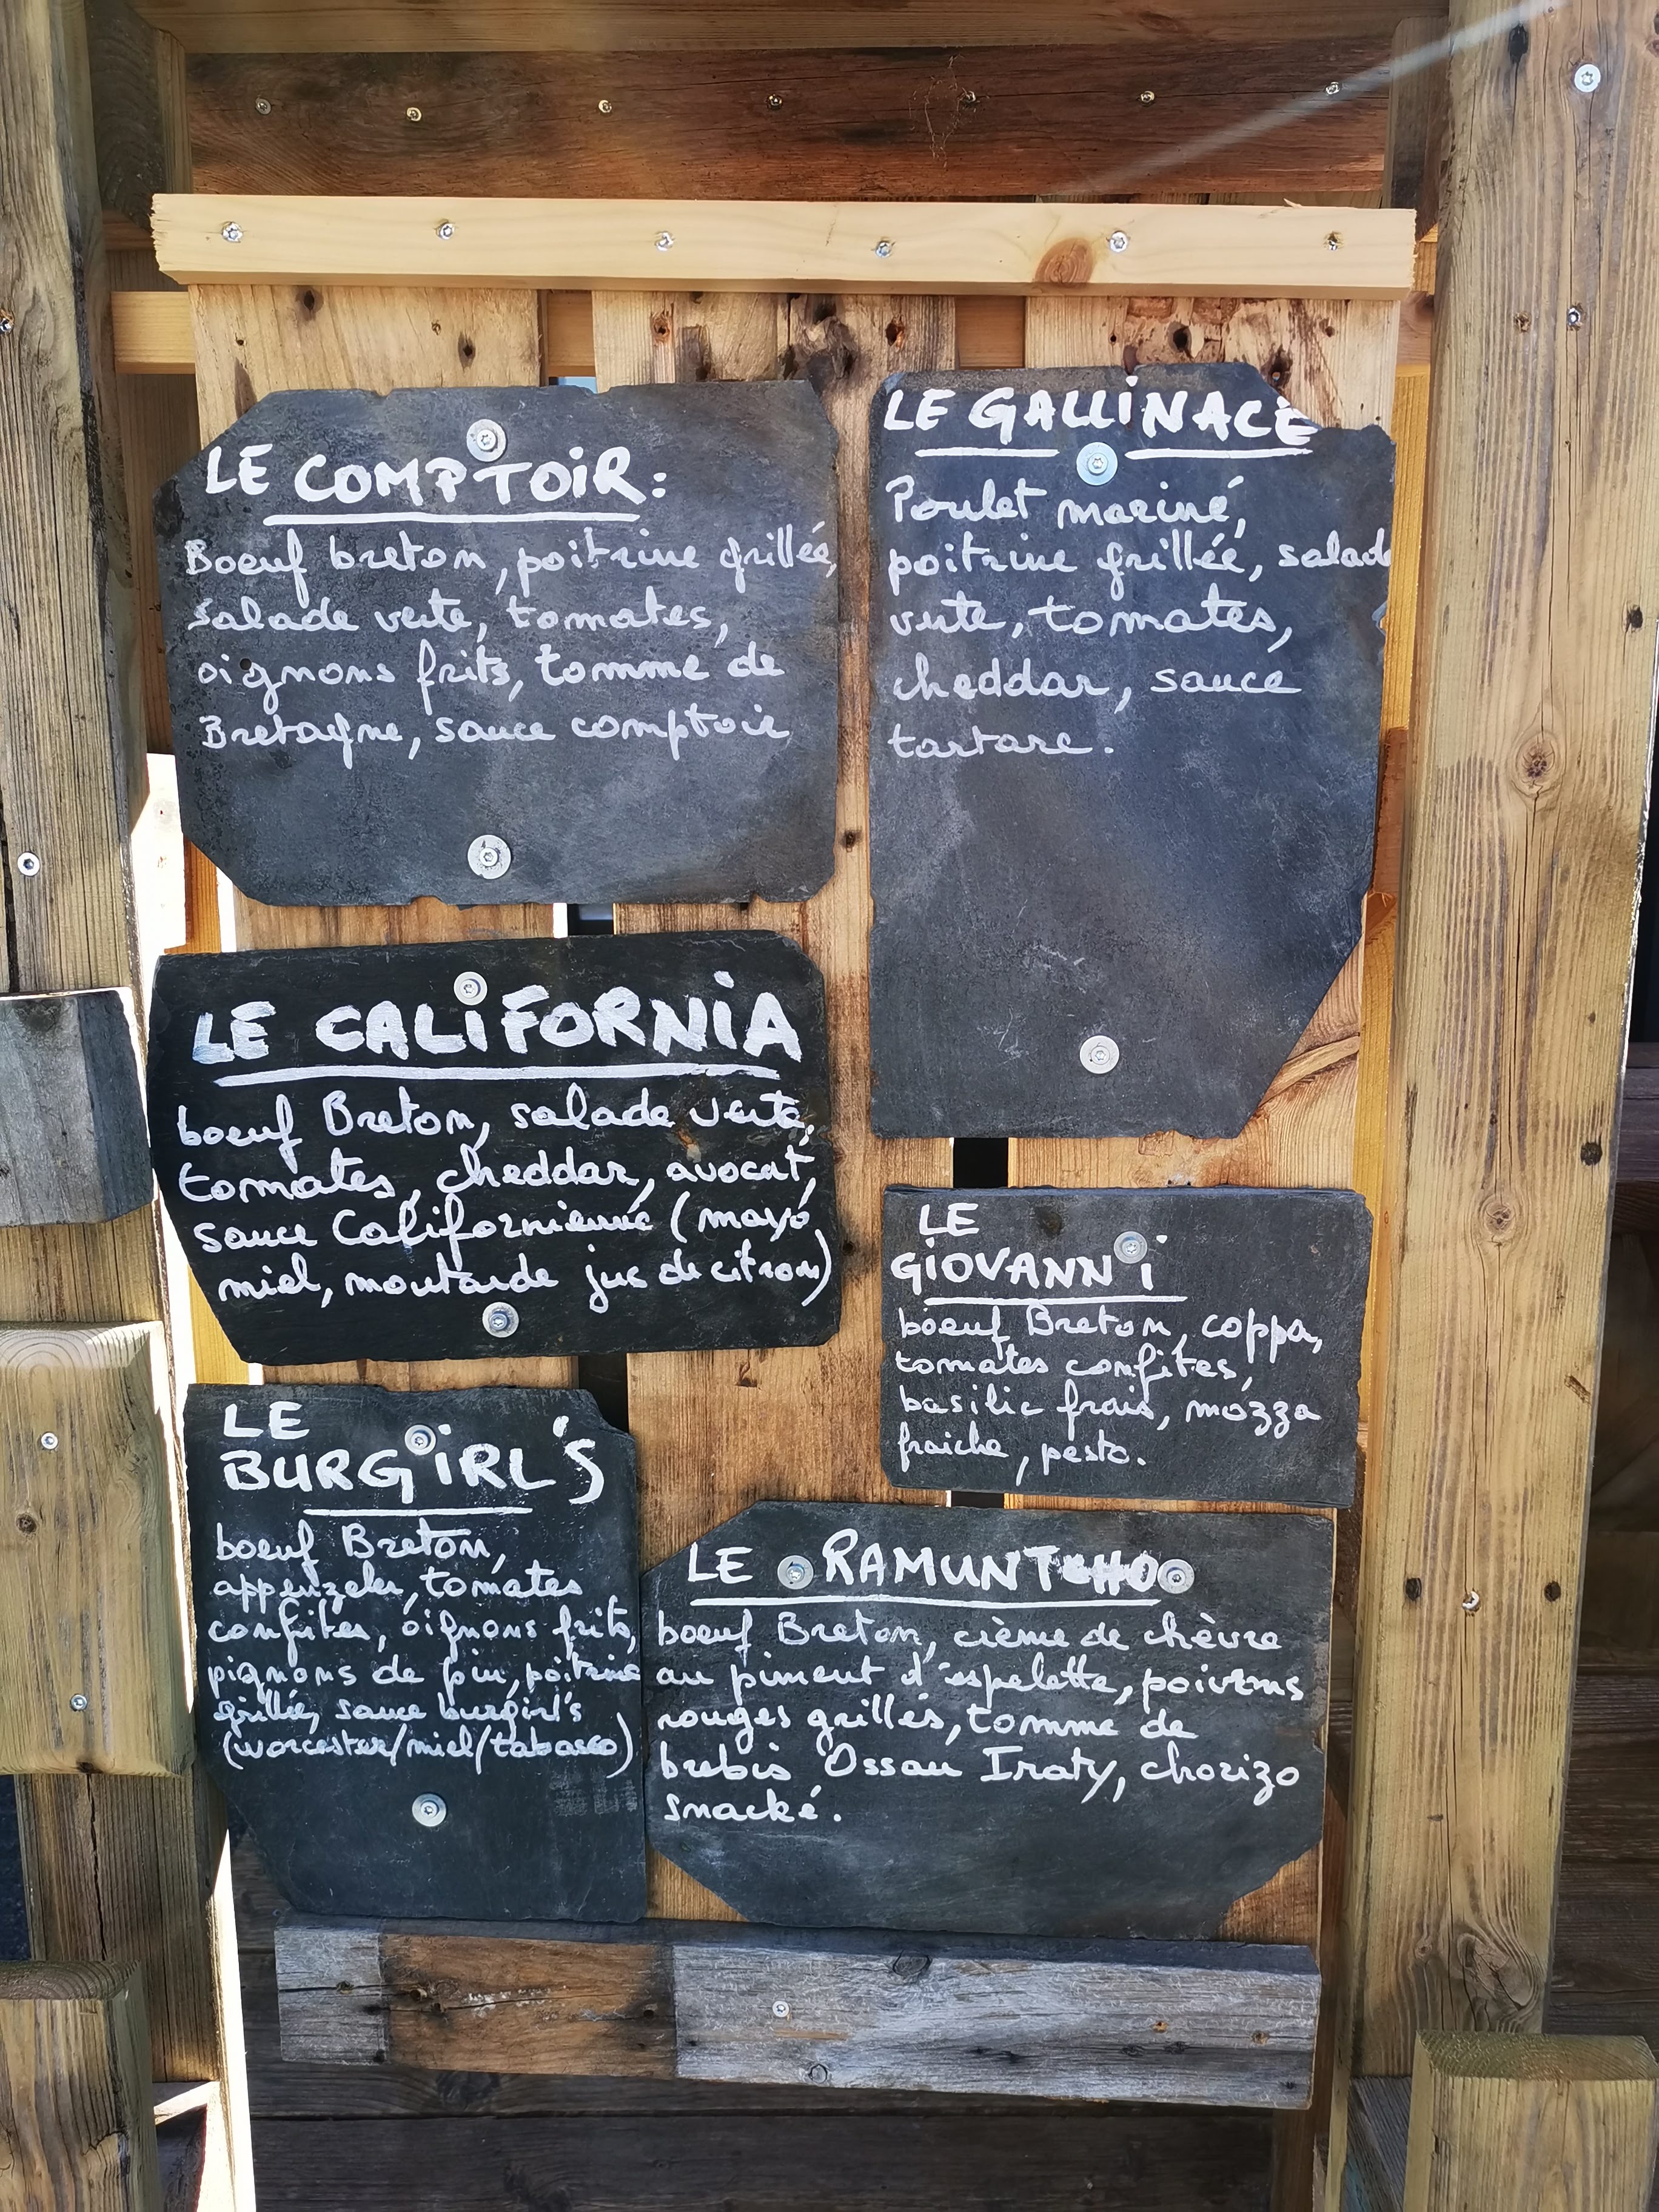 LE COMPTOIR:
Boeuf breton, poitrine grillée,
salade verte, tomates,
oignons frits, tomme de
Bretagne, sauce comptoir
LE GALLINACÉ
Poulet mariné,
poitrine grillée, salade
verte, tomates,
cheddar, sauce
tartare.
LE CALIFORNIA
boeuf Breton, salade verte,
tomates, cheddar, avocat,
sauce Californienne (mayo,
miel, moutarde jus de citron)
LE
GIOVANNI
boeuf Breton, coppa,
tomates confites,
basilic frais, mozza
fraiche, pesto.
LE
BURGIRL'S
boeuf Breton,
appenzeler, tomates
confites, oignons frits,
pignons de pin, poitrine
grillée, sauce burgirl's
(worcester/miel/tabasco)
LE RAMUNTCHO
boeuf Breton, crème de chèvre
au piment d'espelette, poivrons
rouges grillés, tomme de
brebis Ossau Iraty, chorizo
snacké.